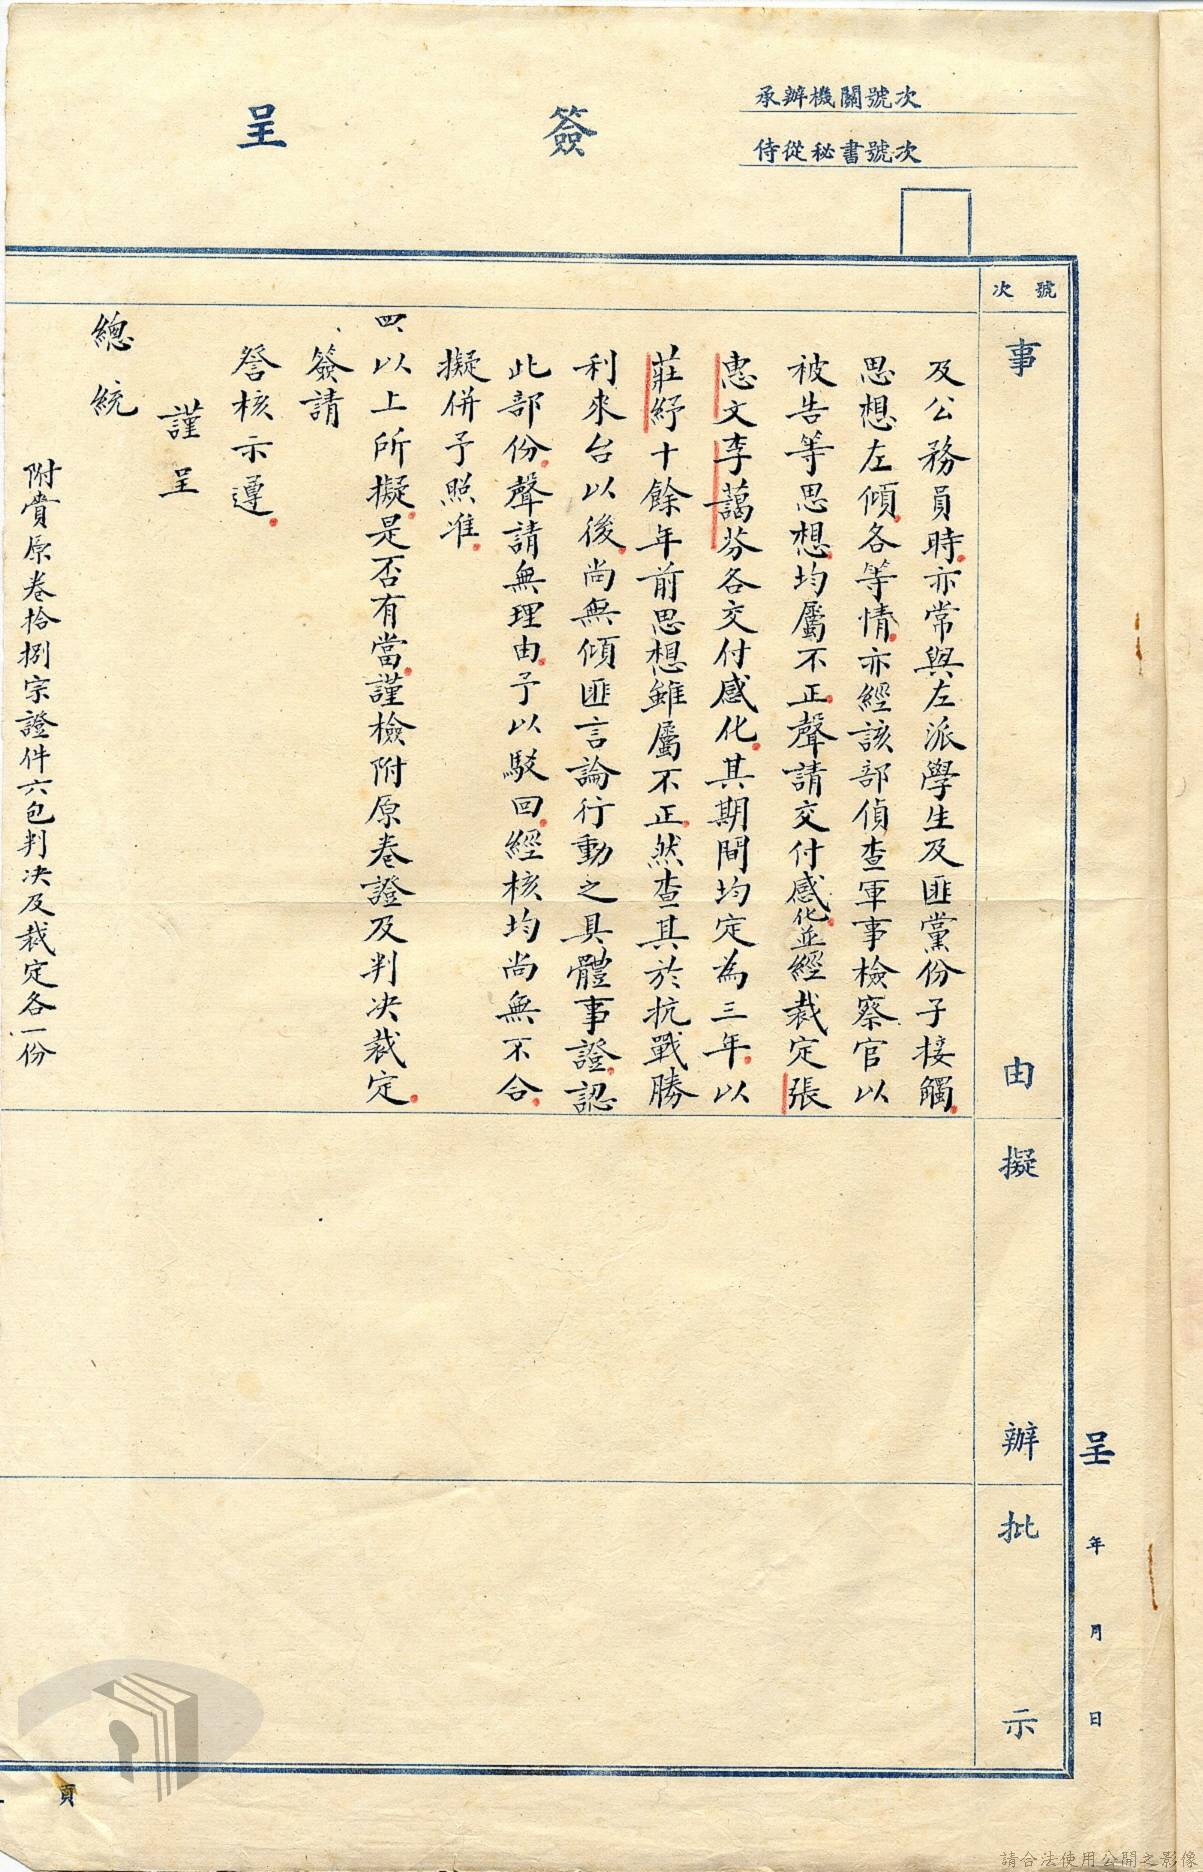 簽呈
承辦機關號次
侍從秘書號次
號次
事由
擬辦
批示
呈 年 月 日
及公務員時，亦常與左派學生及匪黨份子接觸，
思想左傾，各等情，亦經該部偵查軍事檢察官以
被告等思想，均屬不正，聲請交付感化，並經裁定張
惠文李藹芬各交付感化，其期間均定為三年，以
莊紓十餘年前思想雖屬不正，然查其於抗戰勝
利來台以後，尚無傾匪言論行動之具體事證，認
此部份，聲請無理由，予以駁回，經核均尚無不合，
擬併予照准。
四、以上所擬，是否有當，謹檢附原卷證及判決裁定，
簽請
詧核示遵。
謹呈
總統
附賫原卷拾捌宗證件六包判決及裁定各一份
頁
請合法使用公開之影像